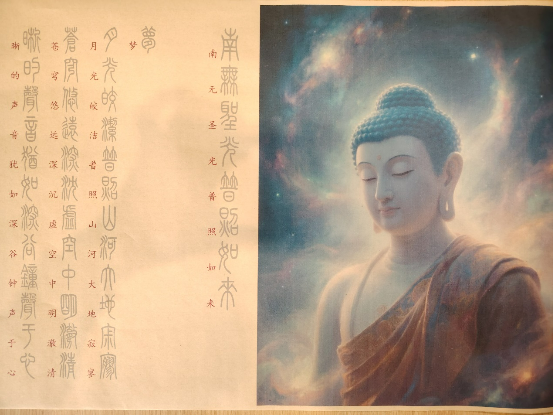 南無聖光普照如來
南无圣光普照如来
夢
梦
月光皎潔普照山河大地寂寥
月光皎洁普照山河大地寂寥
蒼穹悠遠深沈虛空中明澈清
苍穹悠远深沉虚空中明澈清
晰的聲音猶如深谷鐘聲于心
晰的声音犹如深谷钟声于心